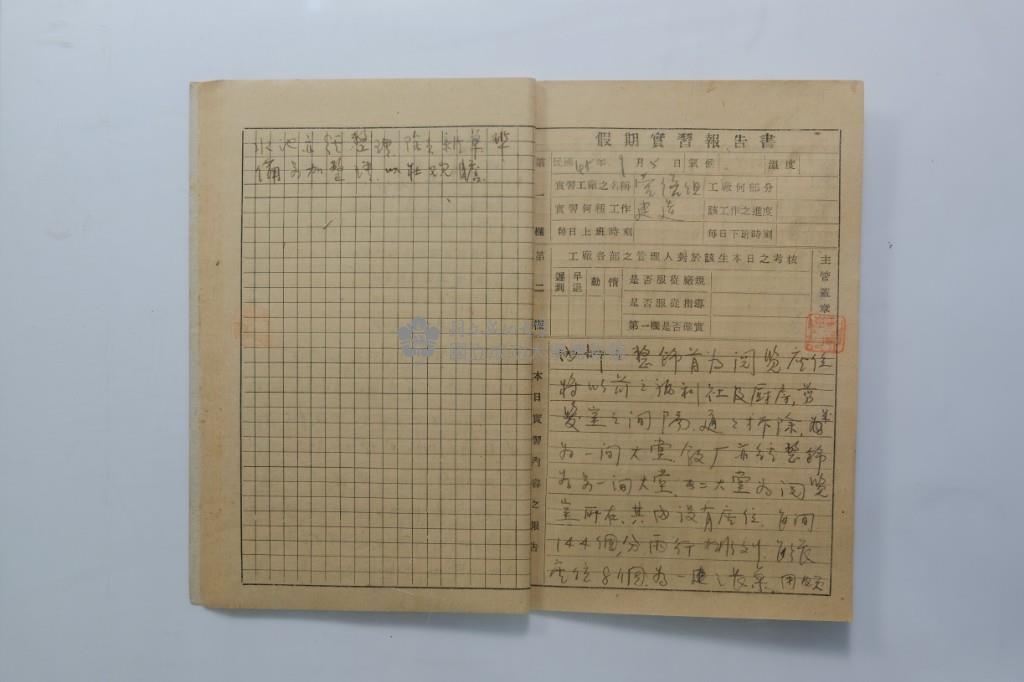 水池亦須整理除去新草準
備多加整詩以壯觀瞻
假期實習報告書
第一欄
民國45年9月5日氣候 溫度
實習工廠之名稱 營繕組 工廠何部分
實習何種工作 建造 該工作之進度
每日上班時刻 每日下班時刻
第二欄
工廠各部之管理人對於該生本日之考核
遲到 早退 勤惰 是否服從廠規
是否服從指導
第一欄是否確實
主管蓋章
本日實習內容之報告
內部之整飾首為閱覽座位
將以前之福利社及厨房,剪
髮室之間隔,通之拆除,
為一間大堂,飯厂亦經整飾
為另一間大堂,此二大堂為閱覽
室所在,其內設有座位,每間
144個,分兩行排列,每張
座位8個,為一連之長桌,用